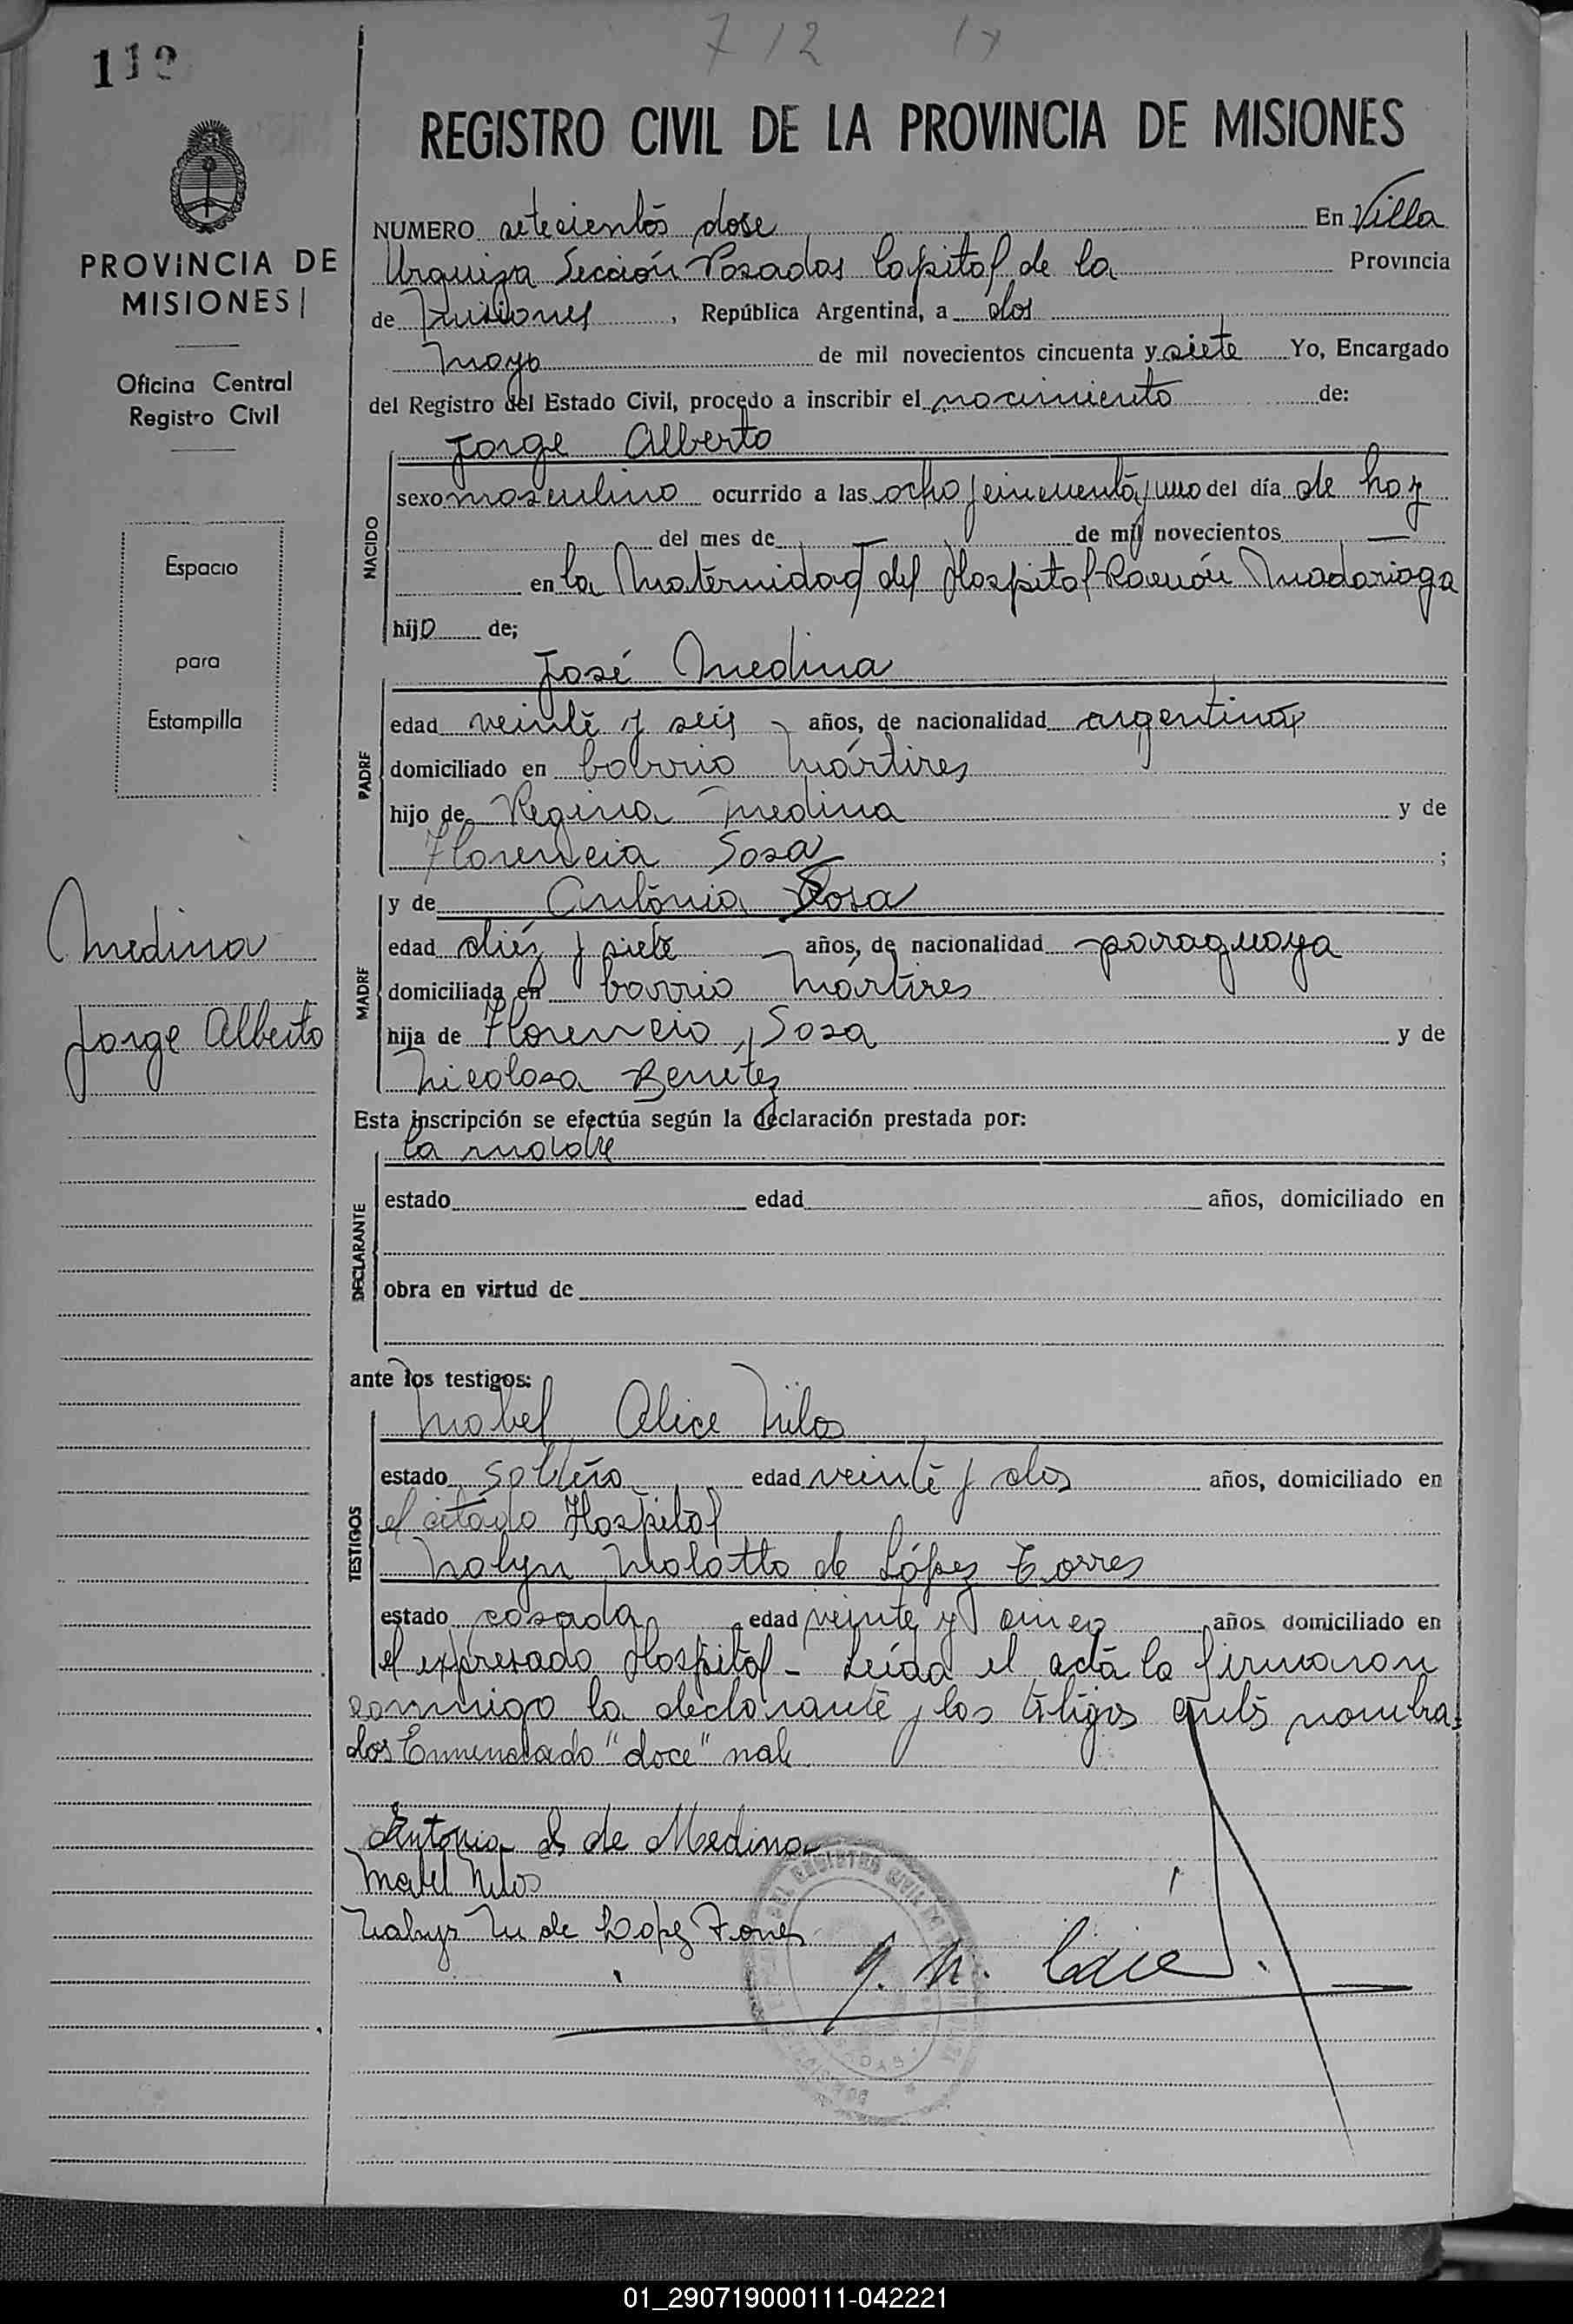 712
112
REGISTRO CIVIL DE LA PROVINCIA DE MISIONES
PROVINCIA DE
MISIONES
Oficina Central
Registro Civil
Espacio
para
Estampilla
Medina
Jorge Alberto
NUMERO setecientos dose En Villa
Urquiza Sección Posadas Capital de la Provincia
de Misiones, República Argentina, a dos
Mayo de mil novecientos cincuenta y siete Yo, Encargado
del Registro del Estado Civil, procedo a inscribir el nacimiento de:
Jorge Alberto
NACIDO
sexo masculino ocurrido a las ocho y cincuenta y uno del día de hoy
del mes de de mil novecientos
en la Maternidad del Hospital Ramón Madariaga
hijo de;
José Medina
PADRE
edad veinte y seis años, de nacionalidad argentina
domiciliado en barrio Mártires
hijo de Regina Medina y de
Florencia Sosa;
y de Antonia Sosa
MADRE
edad diez y siete años, de nacionalidad paraguaya
domiciliada en barrio Mártires
hija de Florencio Sosa y de
Nicolasa Benitez
Esta inscripción se efectúa según la declaración prestada por:
la madre
DECLARANTE
estado edad años, domiciliado en
obra en virtud de
ante los testigos:
Mabel Alice
TESTIGOS
estado soltera edad veinte y dos años, domiciliado en
el citado Hospital
de López Torres
estado casada edad veinte y cinco años domiciliado en
el expresado Hospital - Leída el acta la firmaron
conmigo la declarante y los testigos antes nombra-
dos Enmendado "doce" vale
Antonia S de Medina
Mabel
de Lopez Torres
01_290719000111-042221